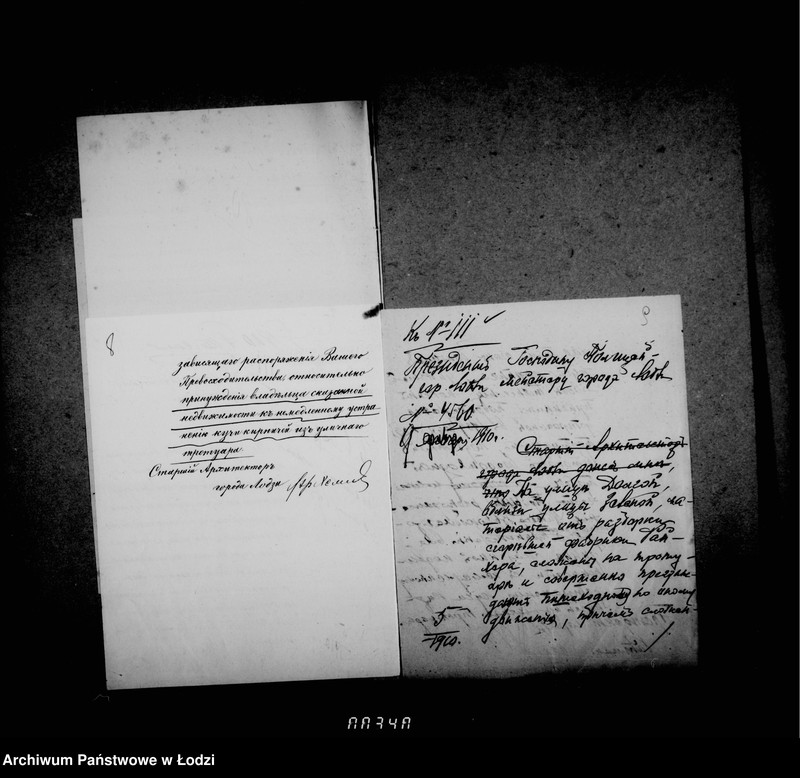 8
зависящаго распоряженія Вашего
Превосходительства относительно
принужденія владѣльца сказанной
недвижимости къ немедленному устра-
ненію кучи кирпичей изъ уличнаго
тротуара
Старшій Архитекторъ
города Лодзи
9
Къ № 111
Президентъ Господину Полицій-
гор. Лодзи мейстеру города Лодзи
№ 4560
9 1910 г.
Старшій Архитекторъ
города Лодзи донесъ мнѣ,
что На улицѣ Долгой,
вблизи улицы ма-
теріалы отъ разборки
сгорѣвшей фабрики
сложены на тротуа-
рѣ и совершенно преграж-
даютъ пѣшеходному по оному
движенію, причемъ
5
1910.
ППЗ4П
Archiwum Państwowe w Łodzi